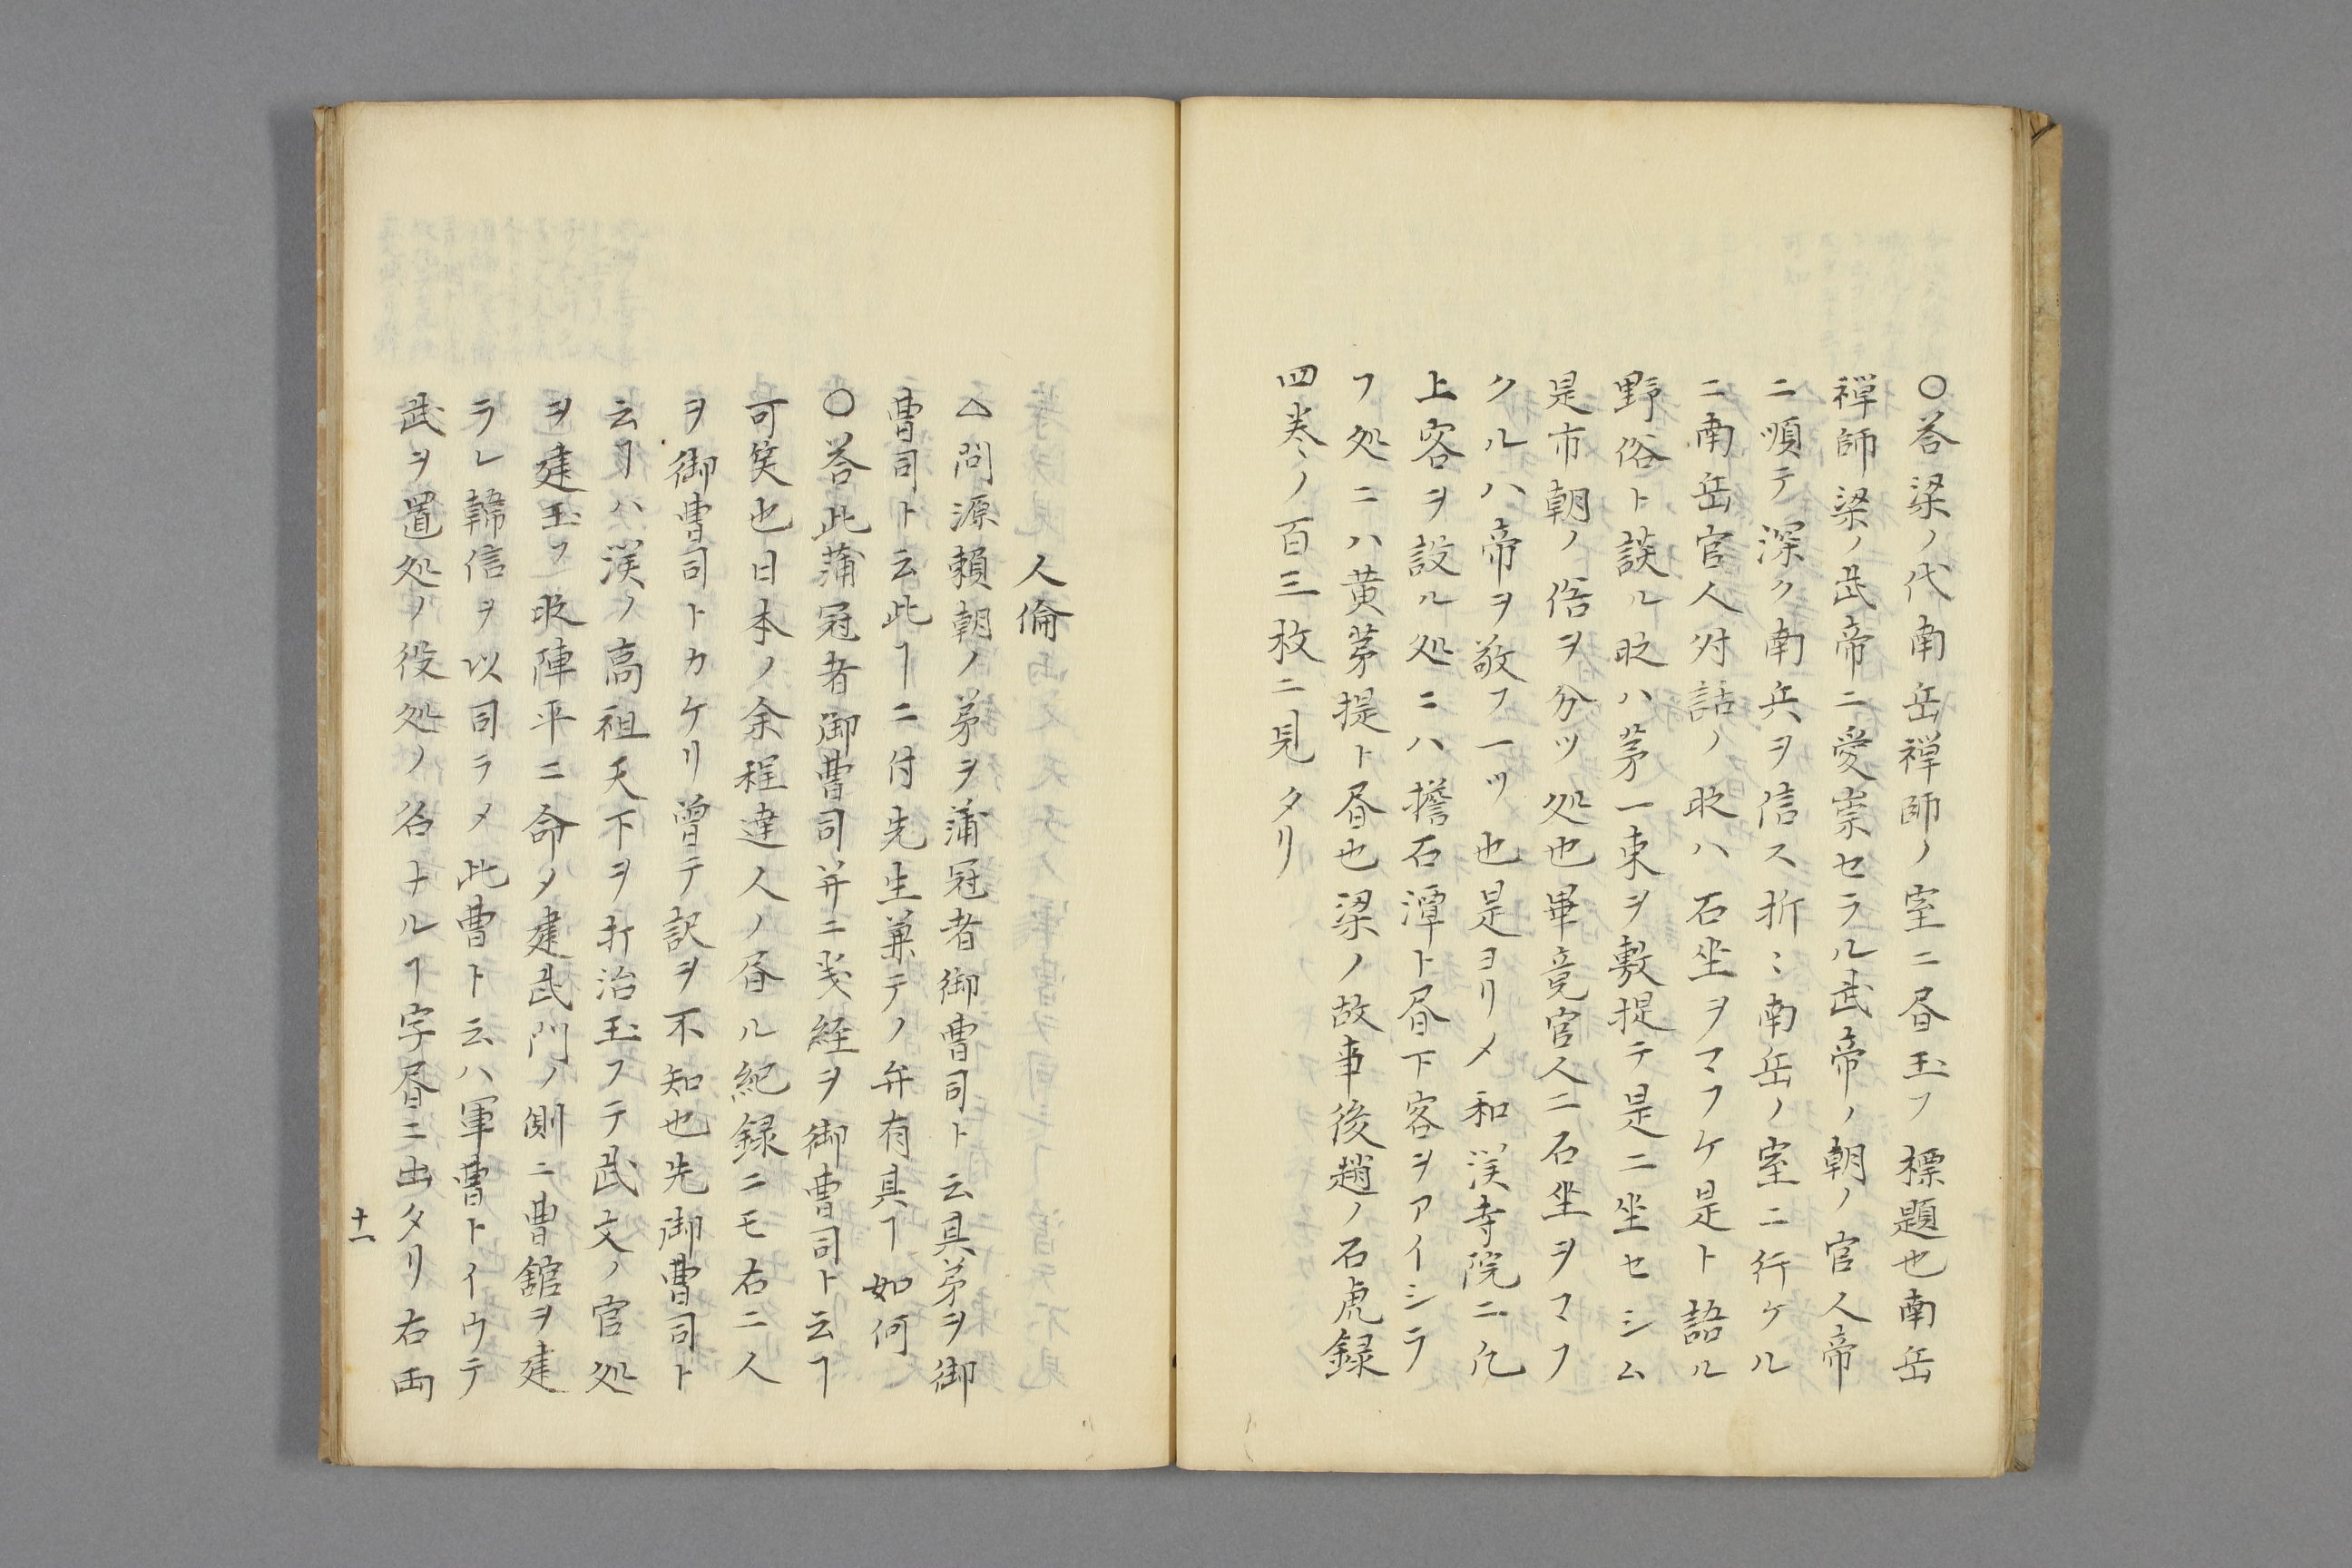 〇荅梁ノ代南岳禅師ノ室ニ昼玉フ標題也南岳
禅師梁ノ武帝ニ愛崇セラル武帝ノ朝ノ官人帝
ニ順テ深ク南兵ヲ信ス折〻南岳ノ室ニ行ケル
ニ南岳官人対話ノ時ハ石坐ヲマフケ是ト語ル
野俗ト談ル時ハ茅一束ヲ敷提テ是ニ坐セシム
是市朝ノ俗ヲ分ツ処也畢竟官人ニ石坐ヲマフ
クルハ帝ヲ敬フ一ツ也是ヨリメ和漢寺院ニ凢
上客ヲ設ル処ニハ擔石潭ト昼下客ヲアイシラ
フ処ニハ黄茅提ト昼也梁ノ故事後趙ノ石虎録
四巻ノ百三枚ニ見タリ
人倫
△問源頼朝ノ弟ヲ蒲冠者御曹司ト云其弟ヲ御
曹司ト云此ヿニ付先生兼テノ弁有其ヿ如何
〇荅此蒲冠者御曹司并ニ義経ヲ御曹司ト云ヿ
可笑也日本ノ余程達人ノ昼ル紀録ニモ右二人
ヲ御曹司トカケリ曽テ訳ヲ不知也先御曹司ト
云ヿハ漢ノ高祖天下ヲ折治玉フテ武文ノ官処
ヲ建玉フ時陣平ニ命メ建武門ノ側ニ曹舘ヲ建
ラレ韓信ヲ以司ラメ此曹ト云ハ軍曹トイウテ
武ヲ置処ノ役処ノ名ナルヿ字昼ニ出タリ右両
十一